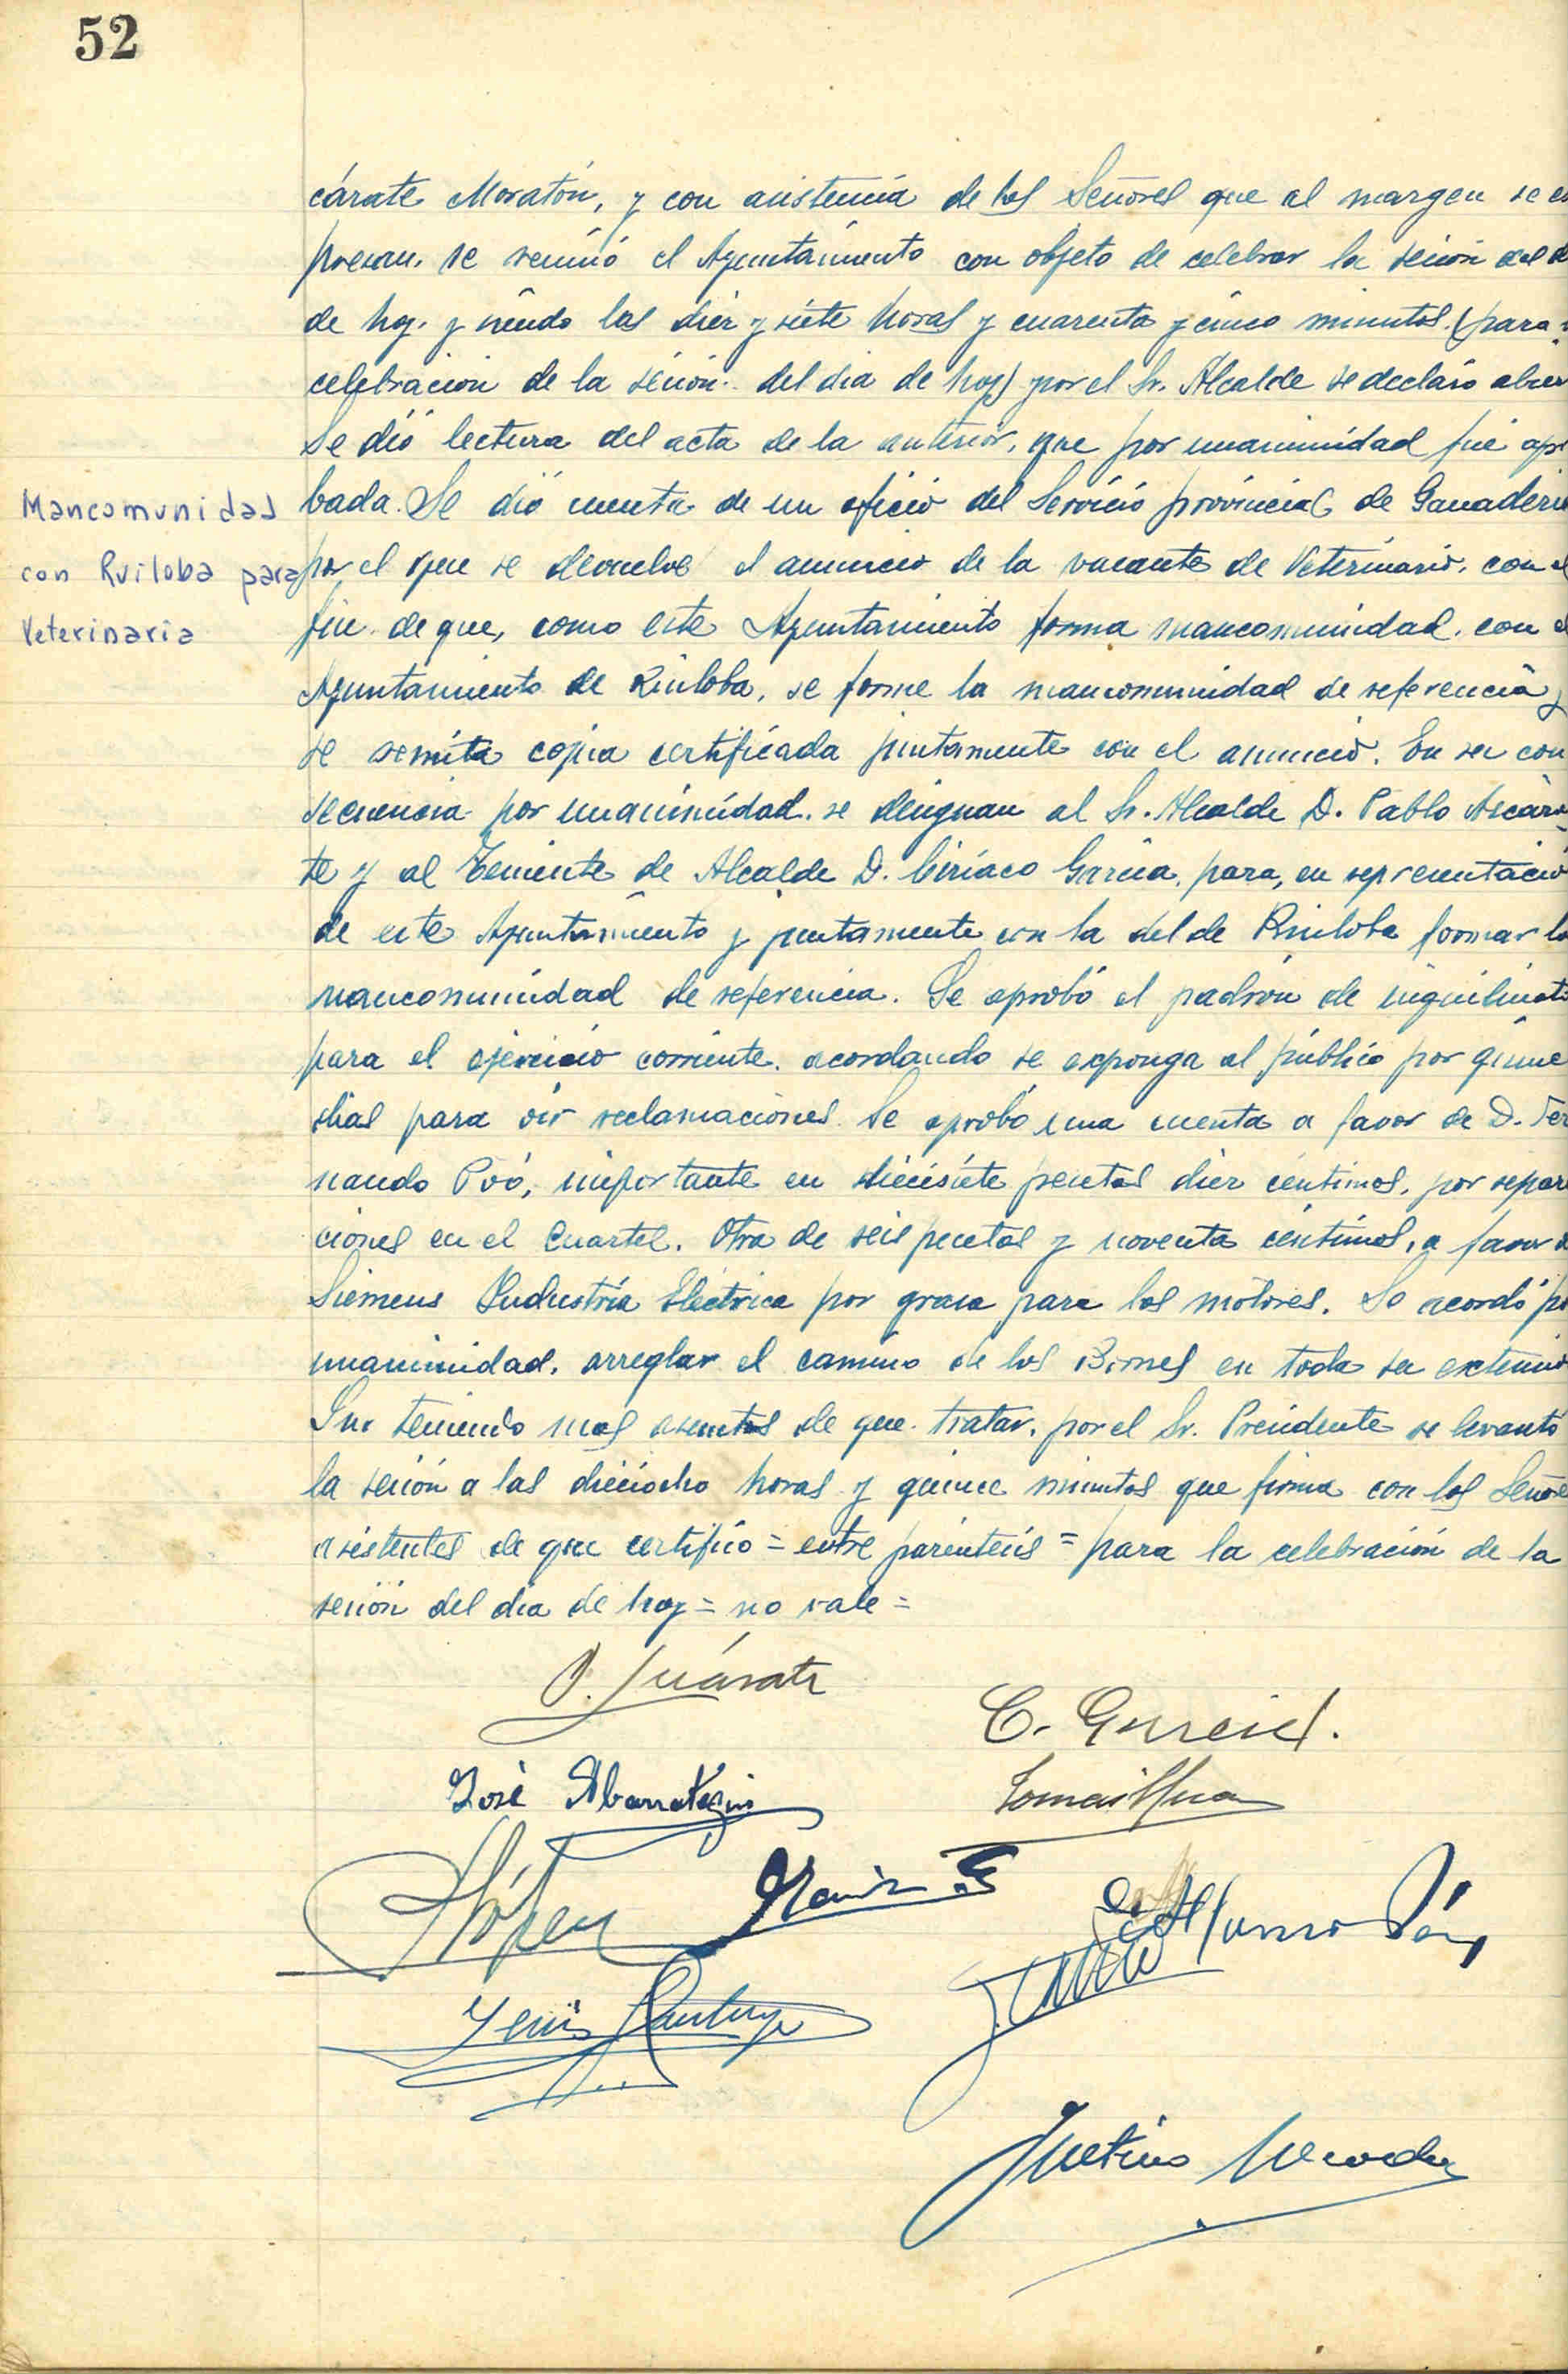 52
cárate Moratón, y con asistencia de los Señores que al margen se ex
presan, se reunió el Ayuntamiento con objeto de celebrar la sesión del d
de hoy. y siendo las diez y siete horas y cuarenta y cinco minutos. (para
celebracion de la sesión. del dia de hoy) por el Sr. Alcalde se declaró abier
Se dió lectura del acta de la anterior, que por unanimidad fué apr
bada. Se dió cuenta de un oficio del Servicio provincial de Ganaderia
por el que se devuelve el anuncio de la vacante de Veterinario, con el
fin de que, como este Ayuntamiento forma mancomunidad. con el
Ayuntamiento de Ruiloba, se forme la mancomunidad de referencia y
se remita copia certificada juntamente con el anuncio. En su con
secuencia por unanimidad. se designan al Sr. Alcalde D. Pablo Ascára
te y al Teniente de Alcalde D. Ciriaco Garcia, para, en representació
de este Ayuntamiento y juntamente con la del de Ruiloba formar la
mancomunidad de referencia. Se aprobó el padrón de inquilinato
para el ejercicio corriente. acordando se exponga al público por quince
dias para oir reclamaciones. Se aprobó una cuenta a favor de D. Fer
nando Poó, importante en diecisiete pesetas diez centimos, por repara
ciones en el Cuartel. Otra de seis pesetas y noventa céntimos, a favor d
Siemens Industria Eléctrica por grasa para los motores. Se acordó po
unanimidad, arreglar el camino de los en toda su extensió
I no teniendo mas asuntos de que tratar, por el Sr. Presidente se levantó
la sesión a las dieciocho horas y quince minutos que firma con los Señore
asistentes de que certifico = entre paréntesis = para la celebración de la
sesión del dia de hoy = no vale =
Mancomunidad
con Ruiloba para
Veterinaria
C. Garcia.
José